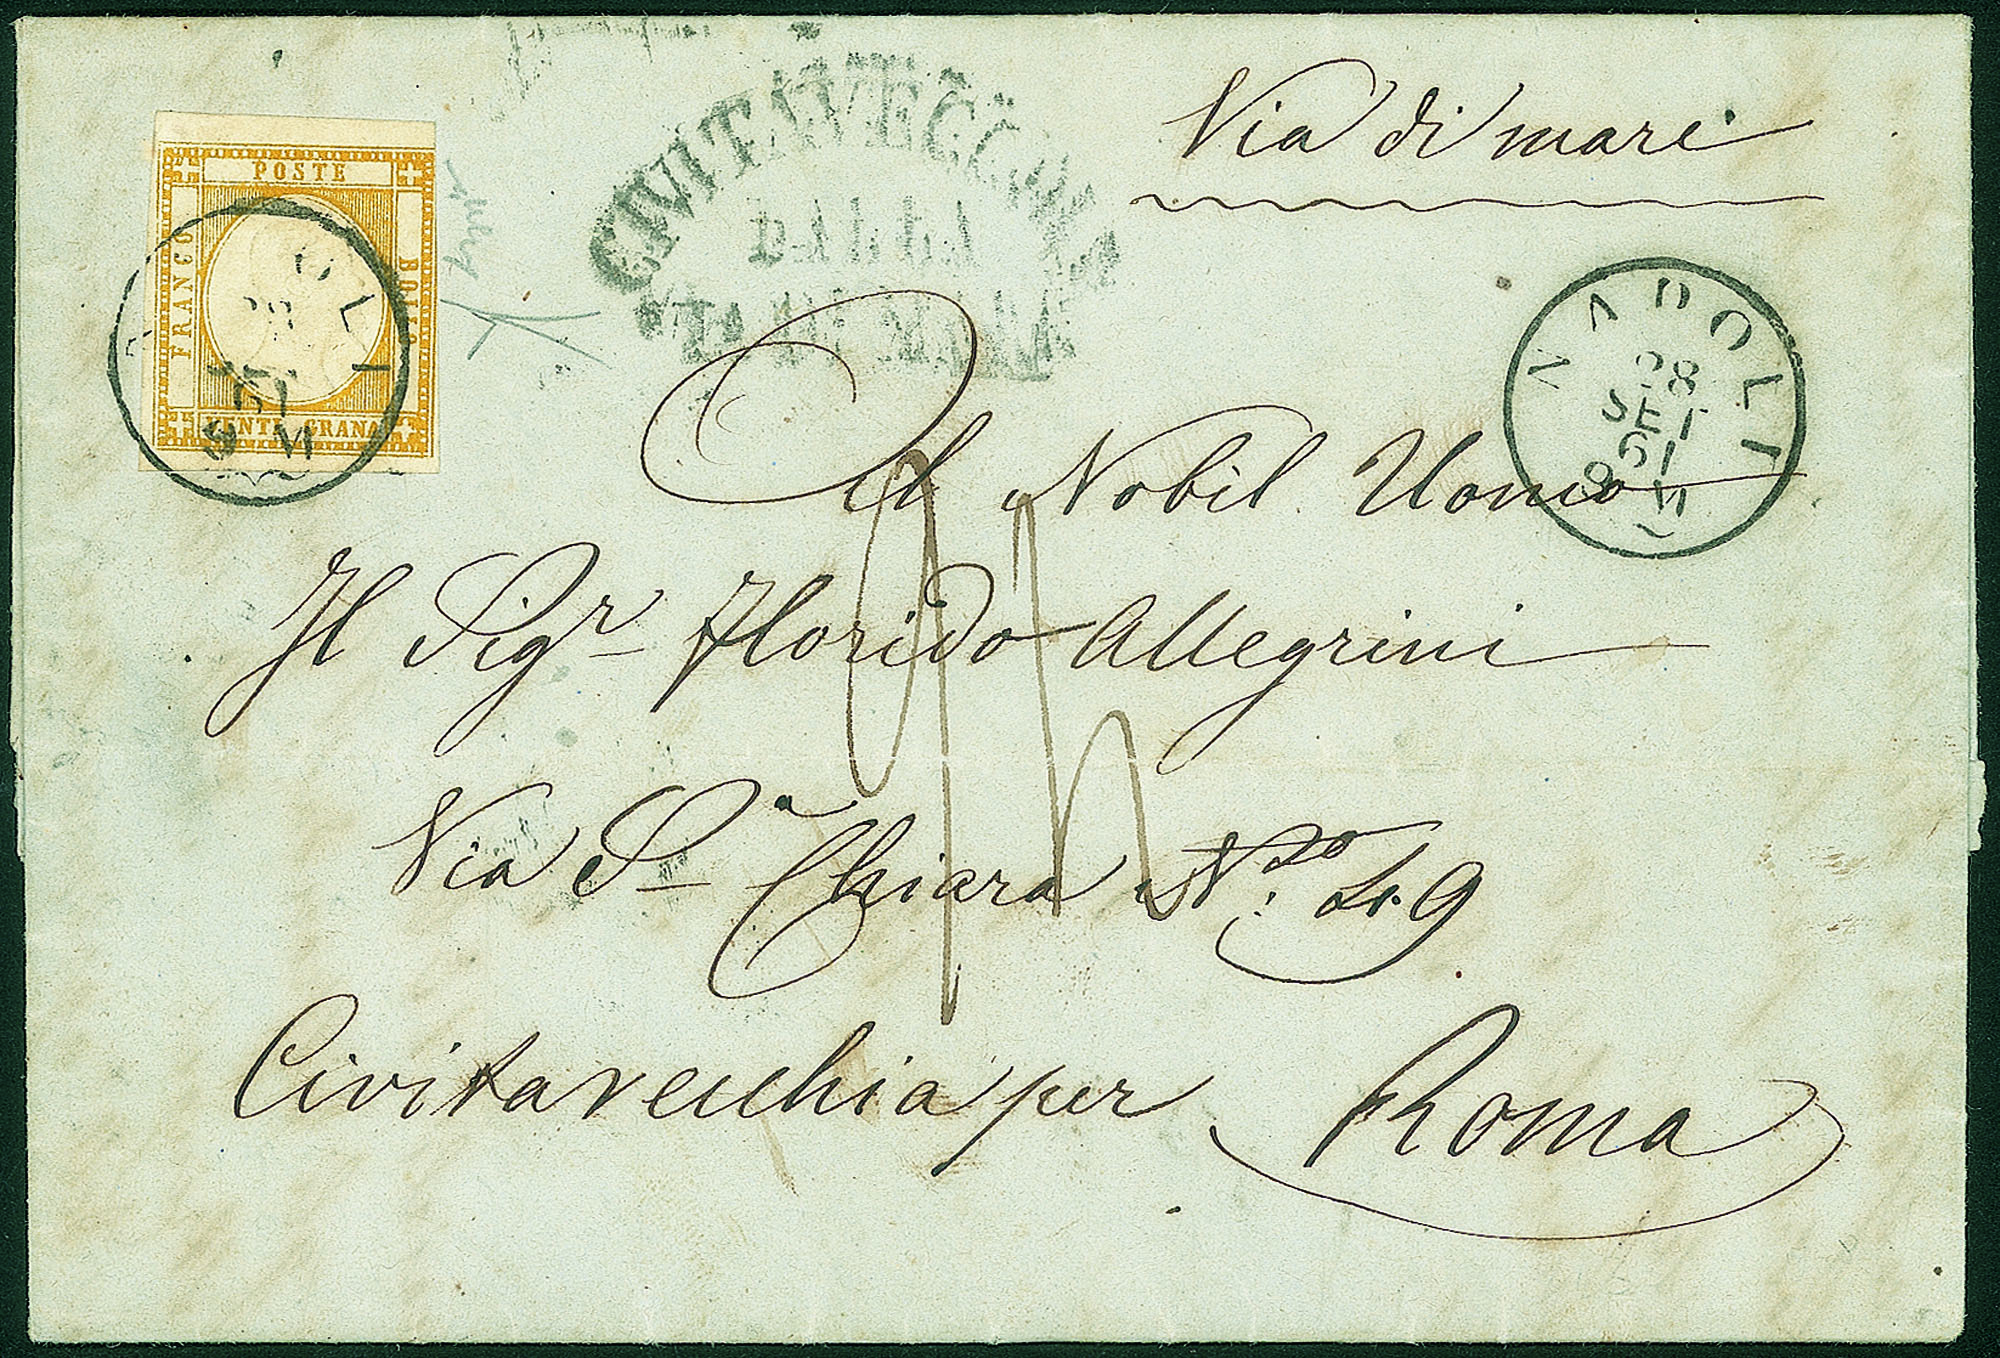 Via di mare
POSTE
FRANCO
BOLLO
VENTI GRANA
CIVITAVECCHIA
DALLA
VIA DI MARE
NAPOLI
28
SET
61
8 M
Al Nobil Uomo
Il Sigr Florido Allegrini
Via Sa Chiara No. 49
Civitavecchia per Roma